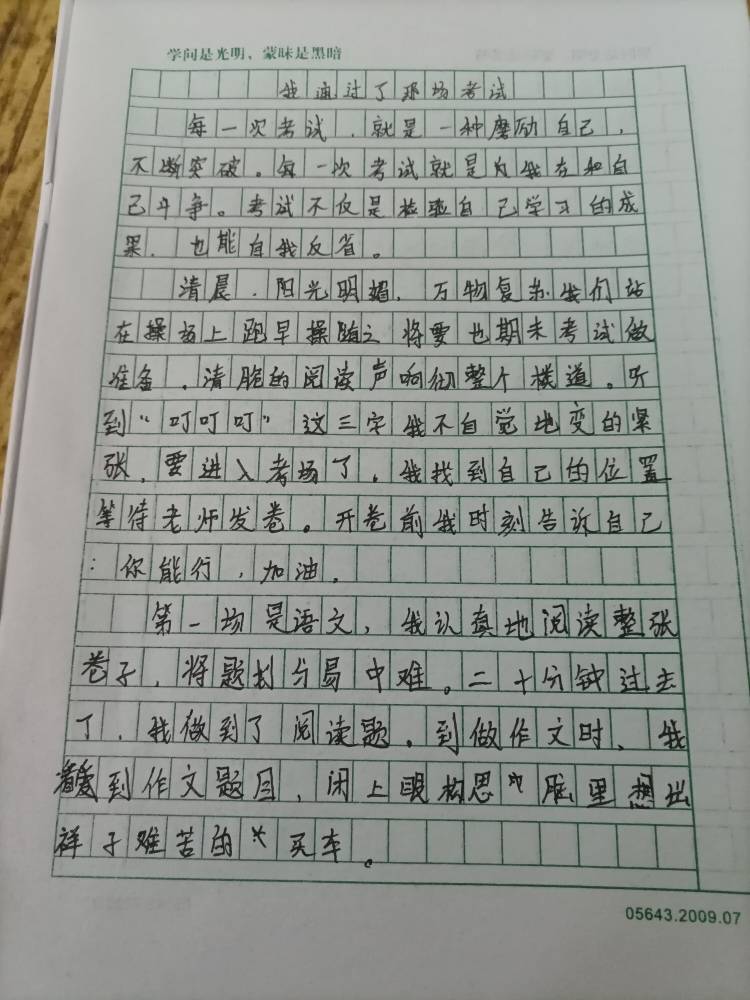 学问是光明，蒙昧是黑暗
我通过了那场考试
每一次考试，就是一种磨励自己，
不断突破。每一次考试就是为我在和自
己斗争。考试不仅是检验自己学习的成
果，也能自我反省。
清晨，阳光明媚，万物复苏我们站
在操场上跑早操随之将要也期末考试做
准备，清脆的阅读声响彻整个楼道。听
到“叮叮叮”这三字我不自觉地变的紧
张，要进入考场了，我找到自己的位置
等待老师发卷。开卷前我时刻告诉自己
：你能行，加油。
第一场是语文，我认真地阅读整张
卷子，将题划分易中难。二十分钟过去
了，我做到了阅读题。到做作文时，我
看到作文题目，闭上眼构思 脑里想出
祥子难苦的 买车。
05643.2009.07